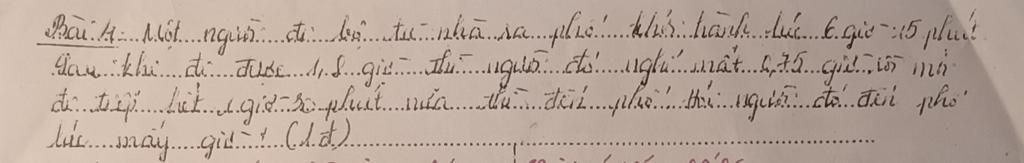 Bài 4: Một người đi bộ từ nhà ra phố khởi hành lúc 6 giờ 15 phút
Sau khi đi được 1,8 giờ thì người đó nghỉ mất 0,75 giờ rồi mới
đi tiếp hết 1 giờ 30 phút nữa thì đến phố. Hỏi người đó đến phố
lúc mấy giờ? (1đ)